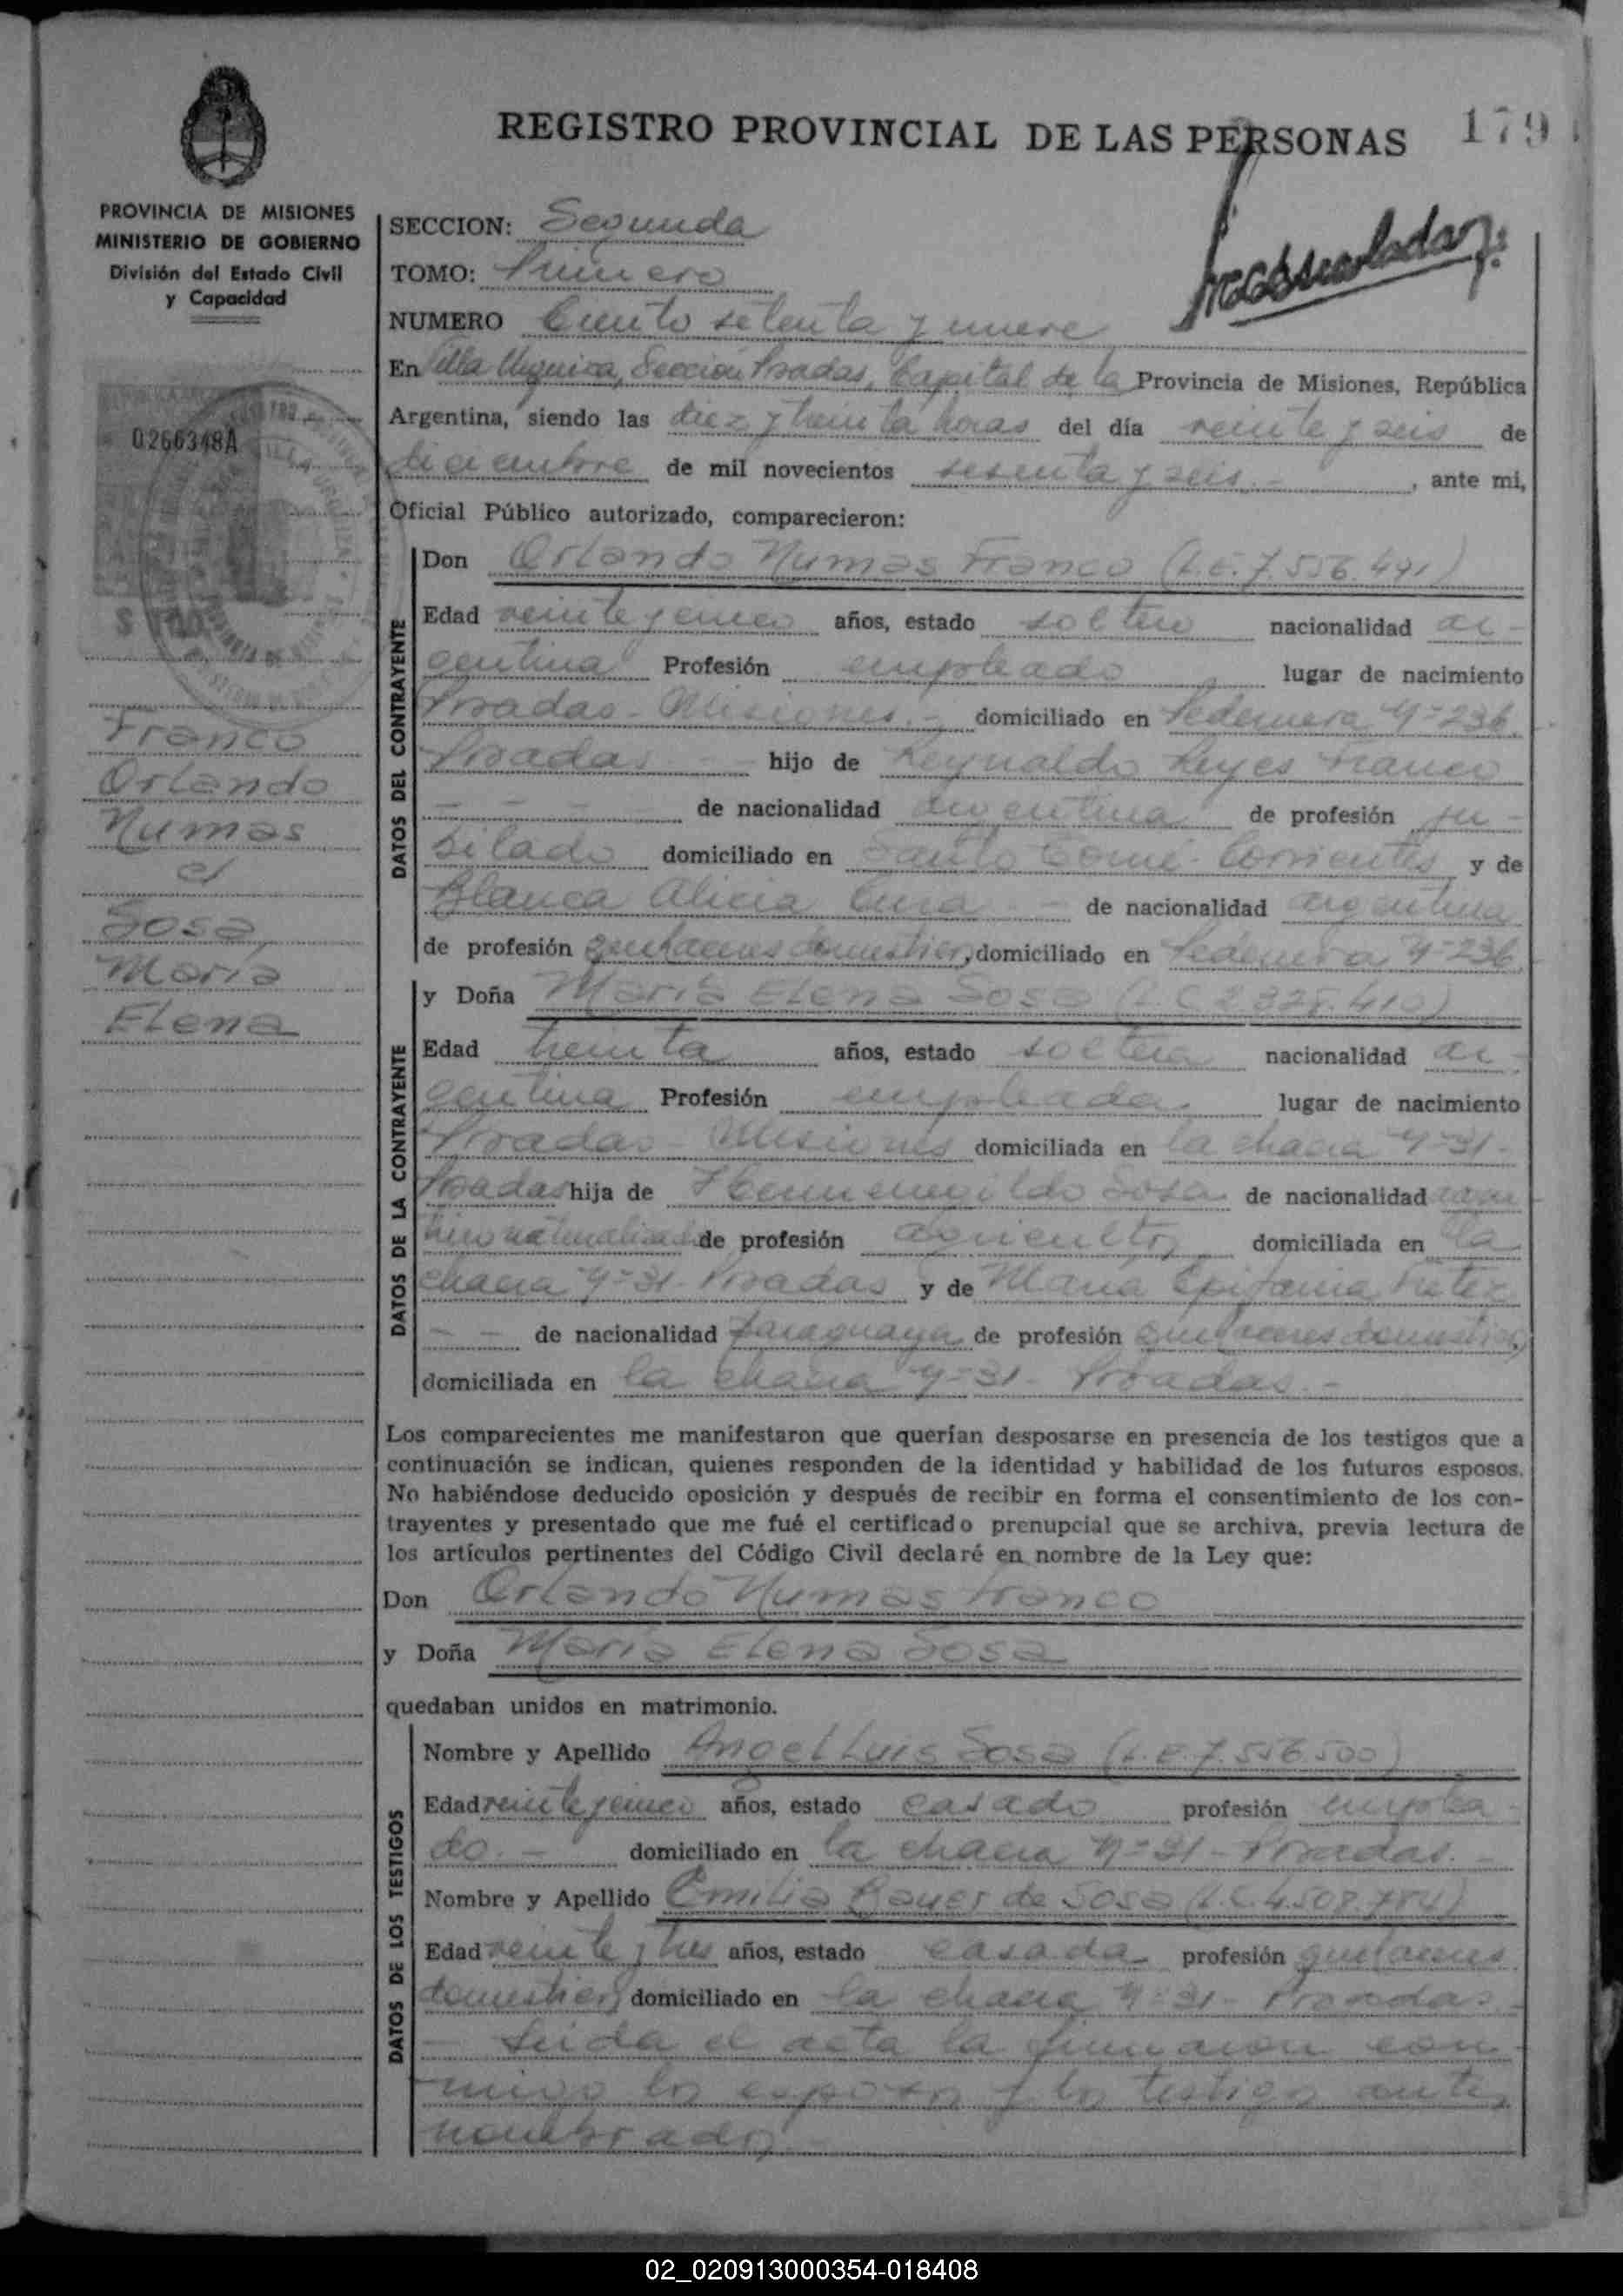 REGISTRO PROVINCIAL DE LAS PERSONAS
179
PROVINCIA DE MISIONES
MINISTERIO DE GOBIERNO
División del Estado Civil
y Capacidad
0266348A
Franco
Orlando
Numas
c/
Sosa,
María
Elena
SECCION: Segunda
TOMO: Primero
NUMERO Ciento setenta y nueve
En Villa Urquiza, Sección Posadas, Capital de la Provincia de Misiones, República
Argentina, siendo las diez y treinta horas del día veinte y seis de
diciembre de mil novecientos sesenta y seis.- , ante mi,
Oficial Público autorizado, comparecieron:
DATOS DEL CONTRAYENTE
Don Orlando Numas Franco (L.E. 7.556.491)
Edad veinte y cinco años, estado soltero nacionalidad ar-
gentina Profesión empleado lugar de nacimiento
Posadas - Misiones.- domiciliado en Pedernera Nº 236
Posadas - hijo de Reynaldo Reyes Franco
- - - - de nacionalidad argentina de profesión ju-
bilado domiciliado en Santo Tomé Corrientes y de
Blanca Alicia - de nacionalidad argentina
de profesión quehaceres domésticos, domiciliado en Pedernera Nº 236
DATOS DE LA CONTRAYENTE
y Doña María Elena Sosa (L.C. 410)
Edad treinta años, estado soltera nacionalidad ar-
gentina Profesión empleada lugar de nacimiento
Posadas - Misiones domiciliada en la chacra Nº 31-
Posadas hija de Hermenegildo Sosa de nacionalidad
naturalizado de profesión agricultor domiciliada en la
chacra Nº 31- Posadas y de María Epifania
- - de nacionalidad paraguaya de profesión quehaceres domésticos,
domiciliada en la chacra Nº 31- Posadas.-
Los comparecientes me manifestaron que querían desposarse en presencia de los testigos que a
continuación se indican, quienes responden de la identidad y habilidad de los futuros esposos.
No habiéndose deducido oposición y después de recibir en forma el consentimiento de los con-
trayentes y presentado que me fué el certificado prenupcial que se archiva, previa lectura de
los artículos pertinentes del Código Civil declaré en nombre de la Ley que:
Don Orlando Numas Franco
y Doña María Elena Sosa
quedaban unidos en matrimonio.
DATOS DE LOS TESTIGOS
Nombre y Apellido Angel Luis Sosa (L.E. 7.556.500)
Edad veinte y cinco años, estado casado profesión emplea-
do.- domiciliado en la chacra Nº 31- Posadas.-
Nombre y Apellido Emilia Bauer de Sosa (L.C. 4.508.784)
Edad veinte y tres años, estado casada profesión quehaceres
domésticos domiciliado en la chacra Nº 31- Posadas-
- Leida el acta la firmaron con-
migo los esposos y los testigos antes
nombrados
02_020913000354-018408